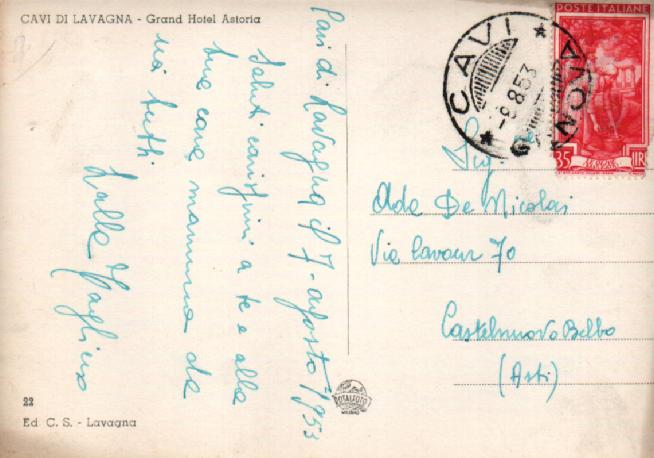 CAVI DI LAVAGNA - Grand Hotel Astoria
Cavi di Lavagna il 7- agosto 1953
Saluti carissimi a te e alla
tua cara mamma da
noi tutti
Lalla
22
Ed C. S. - Lavagna
POSTE ITALIANE
35 LIRE
CAVI
-8.8.53
GENOVA
Sig
Ada De Nicolai
Via Cavour 70
Castelnuovo Belbo
(Asti)